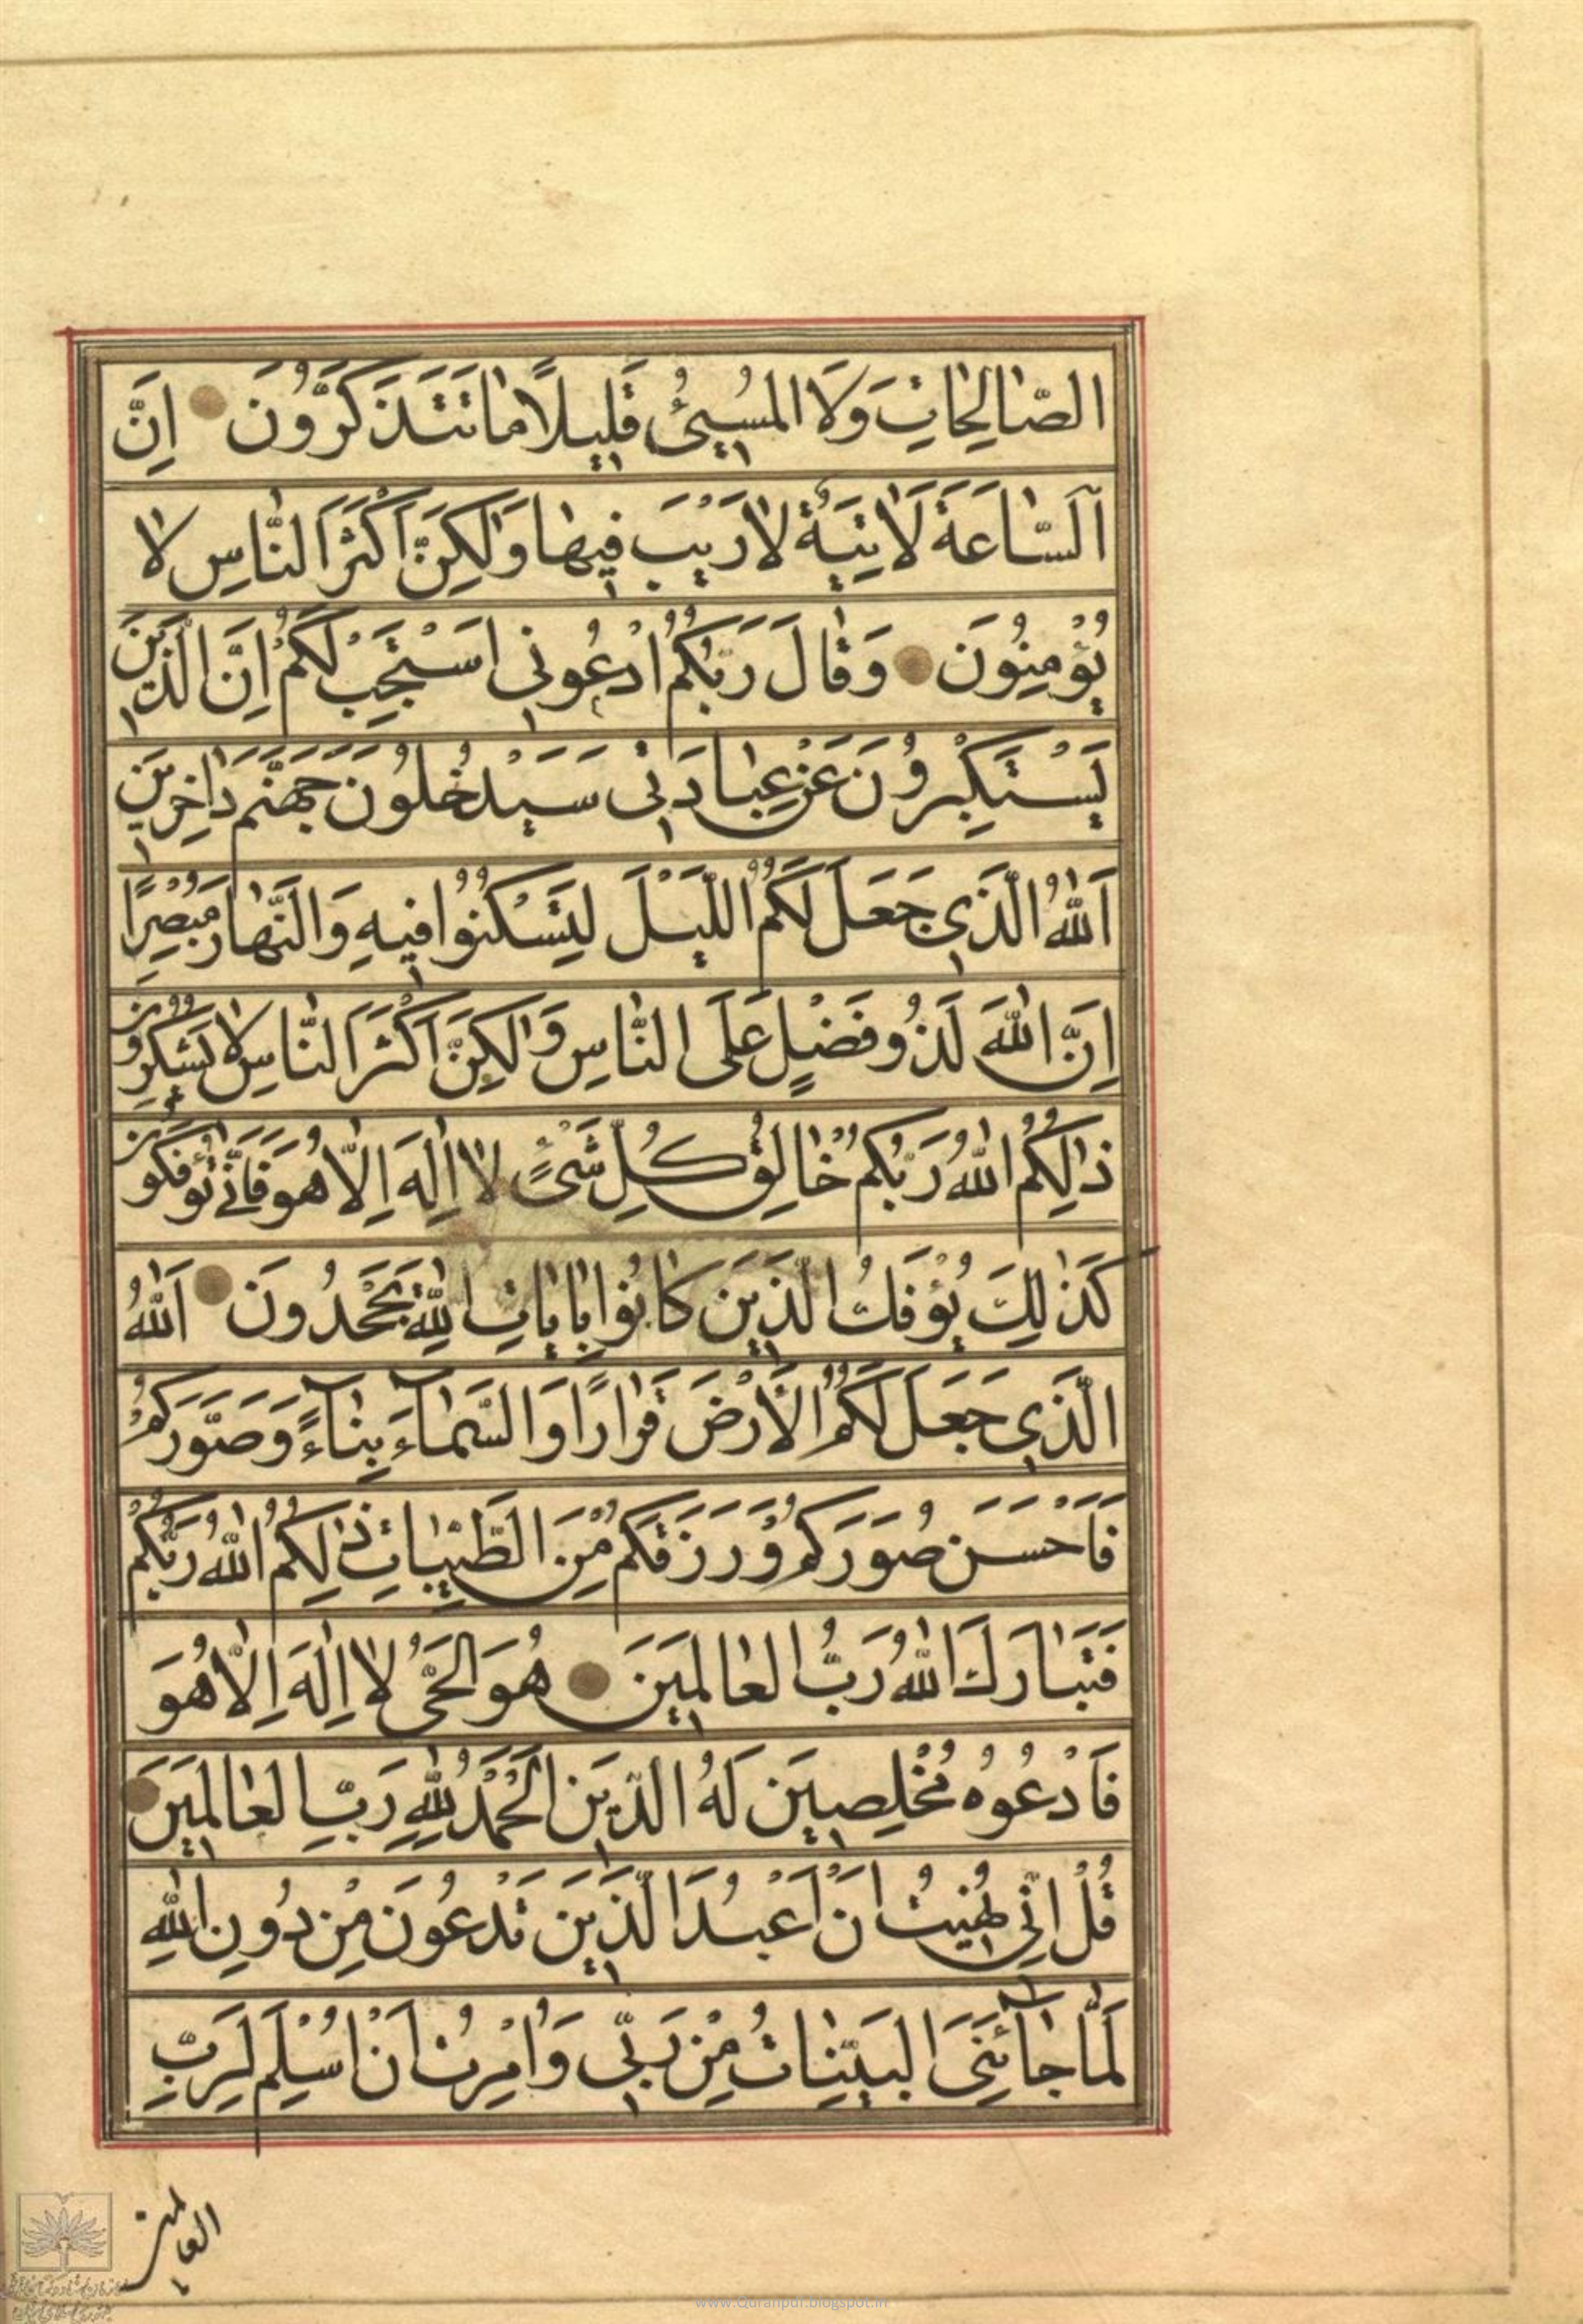 الصّٰالِحٰاتِ وَلَا الْمُسِيئُ قَلِيلًا مٰا تَتَذَكَّرُونَ اِنَّ
اَلسّٰاعَةَ لَاٰتِيَةٌ لٰا رَيْبَ فِيهٰا وَلٰكِنَّ اَكْثَرَ النّٰاسِ لٰا
يُؤْمِنُونَ وَقٰالَ رَبُّكُمُ ادْعُونِي اَسْتَجِبْ لَكُمْ اِنَّ الَّذِينَ
يَسْتَكْبِرُونَ عَنْ عِبٰادَتِي سَيَدْخُلُونَ جَهَنَّمَ دٰاخِرِينَ
اَللّٰهُ الَّذِي جَعَلَ لَكُمُ اللَّيْلَ لِتَسْكُنُوا فِيهِ وَالنَّهٰارَ مُبْصِرًا
اِنَّ اللّٰهَ لَذُو فَضْلٍ عَلَى النّٰاسِ وَلٰكِنَّ اَكْثَرَ النّٰاسِ لٰا يَشْكُرُونَ
ذٰلِكُمُ اللّٰهُ رَبُّكُمْ خٰالِقُ كُلِّ شَيْءٍ لٰا اِلٰهَ اِلّٰا هُوَ فَاَنّٰى تُؤْفَكُونَ
كَذٰلِكَ يُؤْفَكُ الَّذِينَ كٰانُوا بِاٰيٰاتِ اللّٰهِ يَجْحَدُونَ اَللّٰهُ
الَّذِي جَعَلَ لَكُمُ الْاَرْضَ قَرٰارًا وَالسَّمٰآءَ بِنٰآءً وَصَوَّرَكُمْ
فَاَحْسَنَ صُوَرَكُمْ وَرَزَقَكُمْ مِنَ الطَّيِّبٰاتِ ذٰلِكُمُ اللّٰهُ رَبُّكُمْ
فَتَبٰارَكَ اللّٰهُ رَبُّ الْعٰالَمِينَ هُوَ الْحَيُّ لٰا اِلٰهَ اِلّٰا هُوَ
فَادْعُوهُ مُخْلِصِينَ لَهُ الدِّينَ اَلْحَمْدُ لِلّٰهِ رَبِّ الْعٰالَمِينَ
قُلْ اِنِّي نُهِيتُ اَنْ اَعْبُدَ الَّذِينَ تَدْعُونَ مِنْ دُونِ اللّٰهِ
لَمّٰا جٰآئَنِيَ الْبَيِّنٰاتُ مِنْ رَبِّي وَاُمِرْتُ اَنْ اُسْلِمَ لِرَبِّ
العالمين
www.Quranpdf.blogspot.in